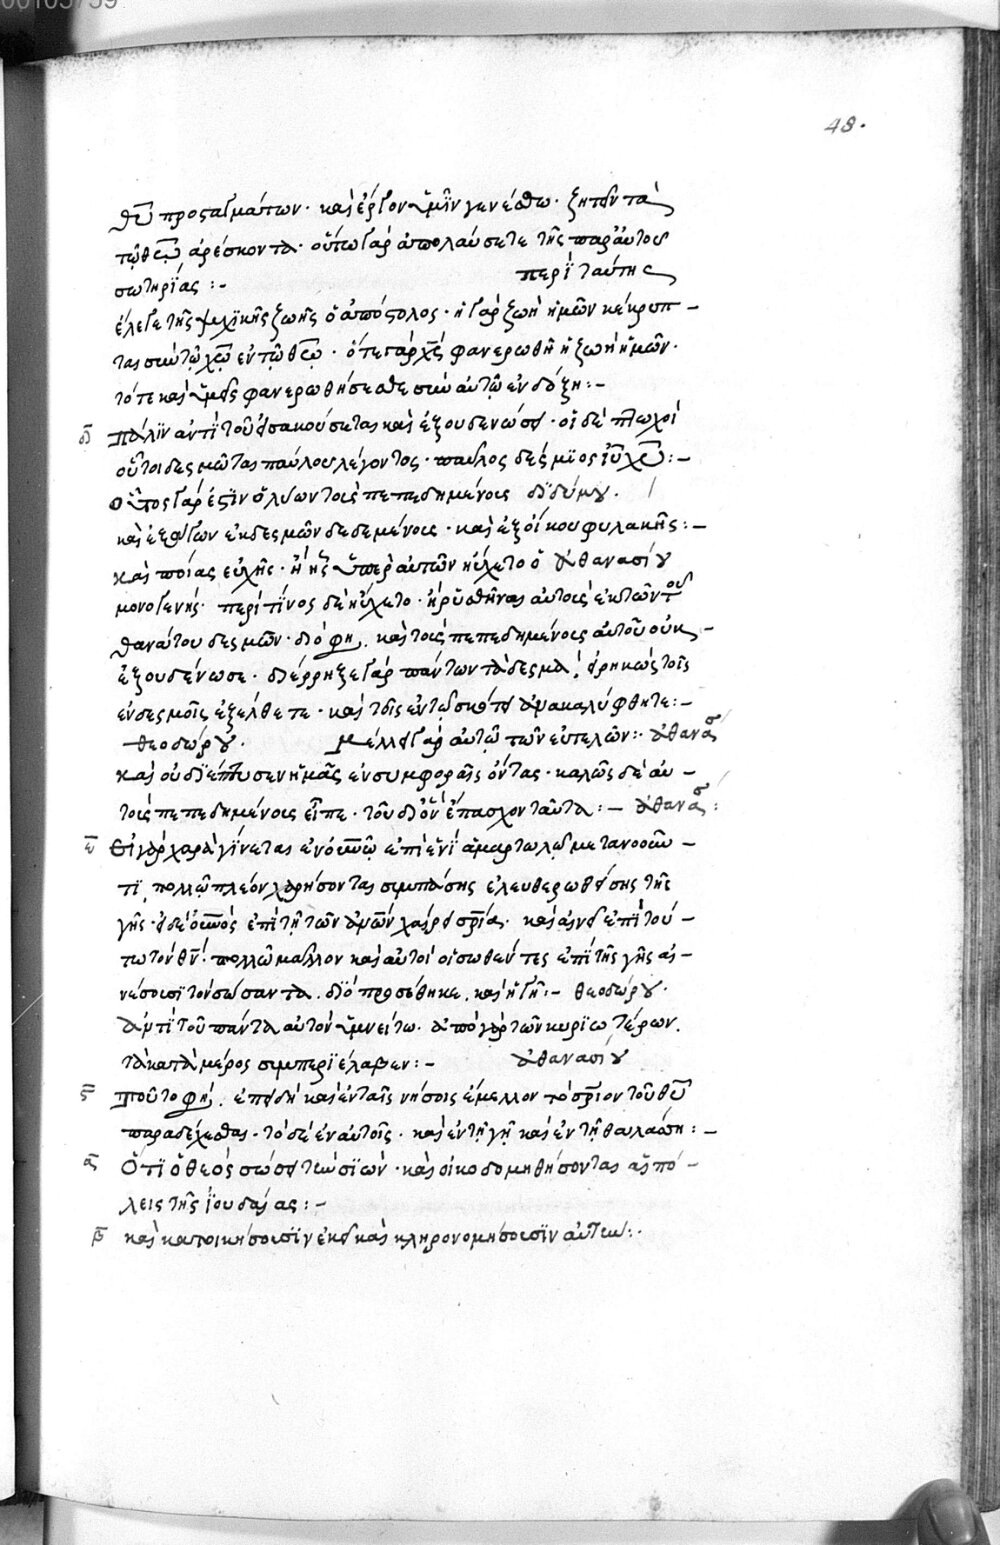 00105759
48.
θῦ προσταγμάτων· καὶ ἔργον ὑμῖν γενέσθω· ζητεῖν τὰ
τῷ θεῷ ἀρέσκοντα· οὕτω γὰρ ἀπολαύσετε τῆς παρ' αὐτοῦ
σωτηρίας :- περὶ ταύτης
ἔλεγε τῆς ψυχικῆς ζωῆς ὁ ἀπόστολος· ἡ γὰρ ζωὴ ἡμῶν κέκρυπ -
ται σὺν τῷ χῷ ἐν τῷ θεῷ· ὅτε γὰρ χς φανερωθῆ ἡ ζωὴ ἡμῶν·
τότε καὶ ὑμεῖς φανερωθήσεσθε σὺν αὐτῷ ἐν δόξη :-
δ πάλιν ἀντὶ τοῦ εἰσακούσεται καὶ ἐξουδενώσει· οἱ δὲ πτωχοὶ
οὗτοι δεσμῶται παύλου λέγοντος· παῦλος δέσμιος ἰῦ χῦ :-
οὗτος γάρ ἐστιν ὁ λύων τοὺς πεπεδημένους διδύμου.
καὶ ἐξάγων ἐκ δεσμῶν δεδεμένους· καὶ ἐξ οἴκου φυλακῆς :-
καὶ ποίας εὐχῆς· ἢ ἧς ὑπὲρ αὐτῶν ηὔχετο ὁ ἀθανασίου
μονογενής· περὶ τίνος δὲ ηὔχετο· ἢ ῥυσθῆναι αὐτοὺς ἐκ τῶν τοῦ
θανάτου δεσμῶν· διό φη. καὶ τοὺς πεπεδημένους αὐτοῦ οὐκ -
ἐξουδένωσε· διέρρηξε γὰρ πάντων τὰ δεσμά, εἰρηκὼς τοῖς
ἐν δεσμοῖς ἐξέλθετε· καὶ τοῖς ἐν τῷ σκότει ἀνακαλύφθητε :-
θεοδώρου. Μέλει γὰρ αὐτῷ τῶν εὐτελῶν :· ἀθανασ
καὶ οὐ διέπτυσεν ἡμᾶς ἐν συμφοραῖς ὄντας· καλῶς δὲ αὐ -
τοὺς πεπεδημένους εἶπε· τοῦ διὸν ἔπασχον ταῦτα :- ἀθανασ :
ε Εἰ γὰρ χαρὰ γίνεται ἐν οὐνῷ ἐπὶ ἑνὶ ἁμαρτωλῷ μετανοοῦν -
τι, πολλῷ πλέον χαρήσονται συμπάσης ἐλευθερωθείσης τῆς
γῆς· εἰ δὲ ὁ οὐνὸς ἐπὶ τῇ τῶν ἀνῶν χαίρει σρίᾳ· καὶ αἰνεῖ ἐπὶ τού -
τω τὸν θν· πολλῷ μᾶλλον καὶ αὐτοὶ οἱ σωθέντες ἐπὶ τῆς γῆς αἰ -
νέσουσι τὸν σώσαντα. διὸ προσέθηκε, καὶ ἡ γῆ :- θεοδώρου.
ἀντὶ τοῦ πάντα αὐτὸν ὑμνείτω. ἀπὸ γὰρ τῶν κυριωτέρων.
τὰ κατὰ μέρος συμπεριέλαβεν :- ἀθανασίου
ς Τοῦτο φη. ἐπειδὴ καὶ ἐν ταῖς νήσοις ἔμελλον τὸ σριον τοῦ θῦ
παραδέχεσθαι· τὸ δὲ ἐν αὐτοῖς· καὶ ἐν τῇ γῇ καὶ ἐν τῇ θαλάσση :-
α Ὅτι ὁ θεὸς σώσει τὴν σιών· καὶ οἰκοδομηθήσονται αἱ πό -
λεις τῆς ἰουδαίας :-
β καὶ κατοικήσουσιν ἐκεῖ καὶ κληρονομήσουσιν αὐτήν :·